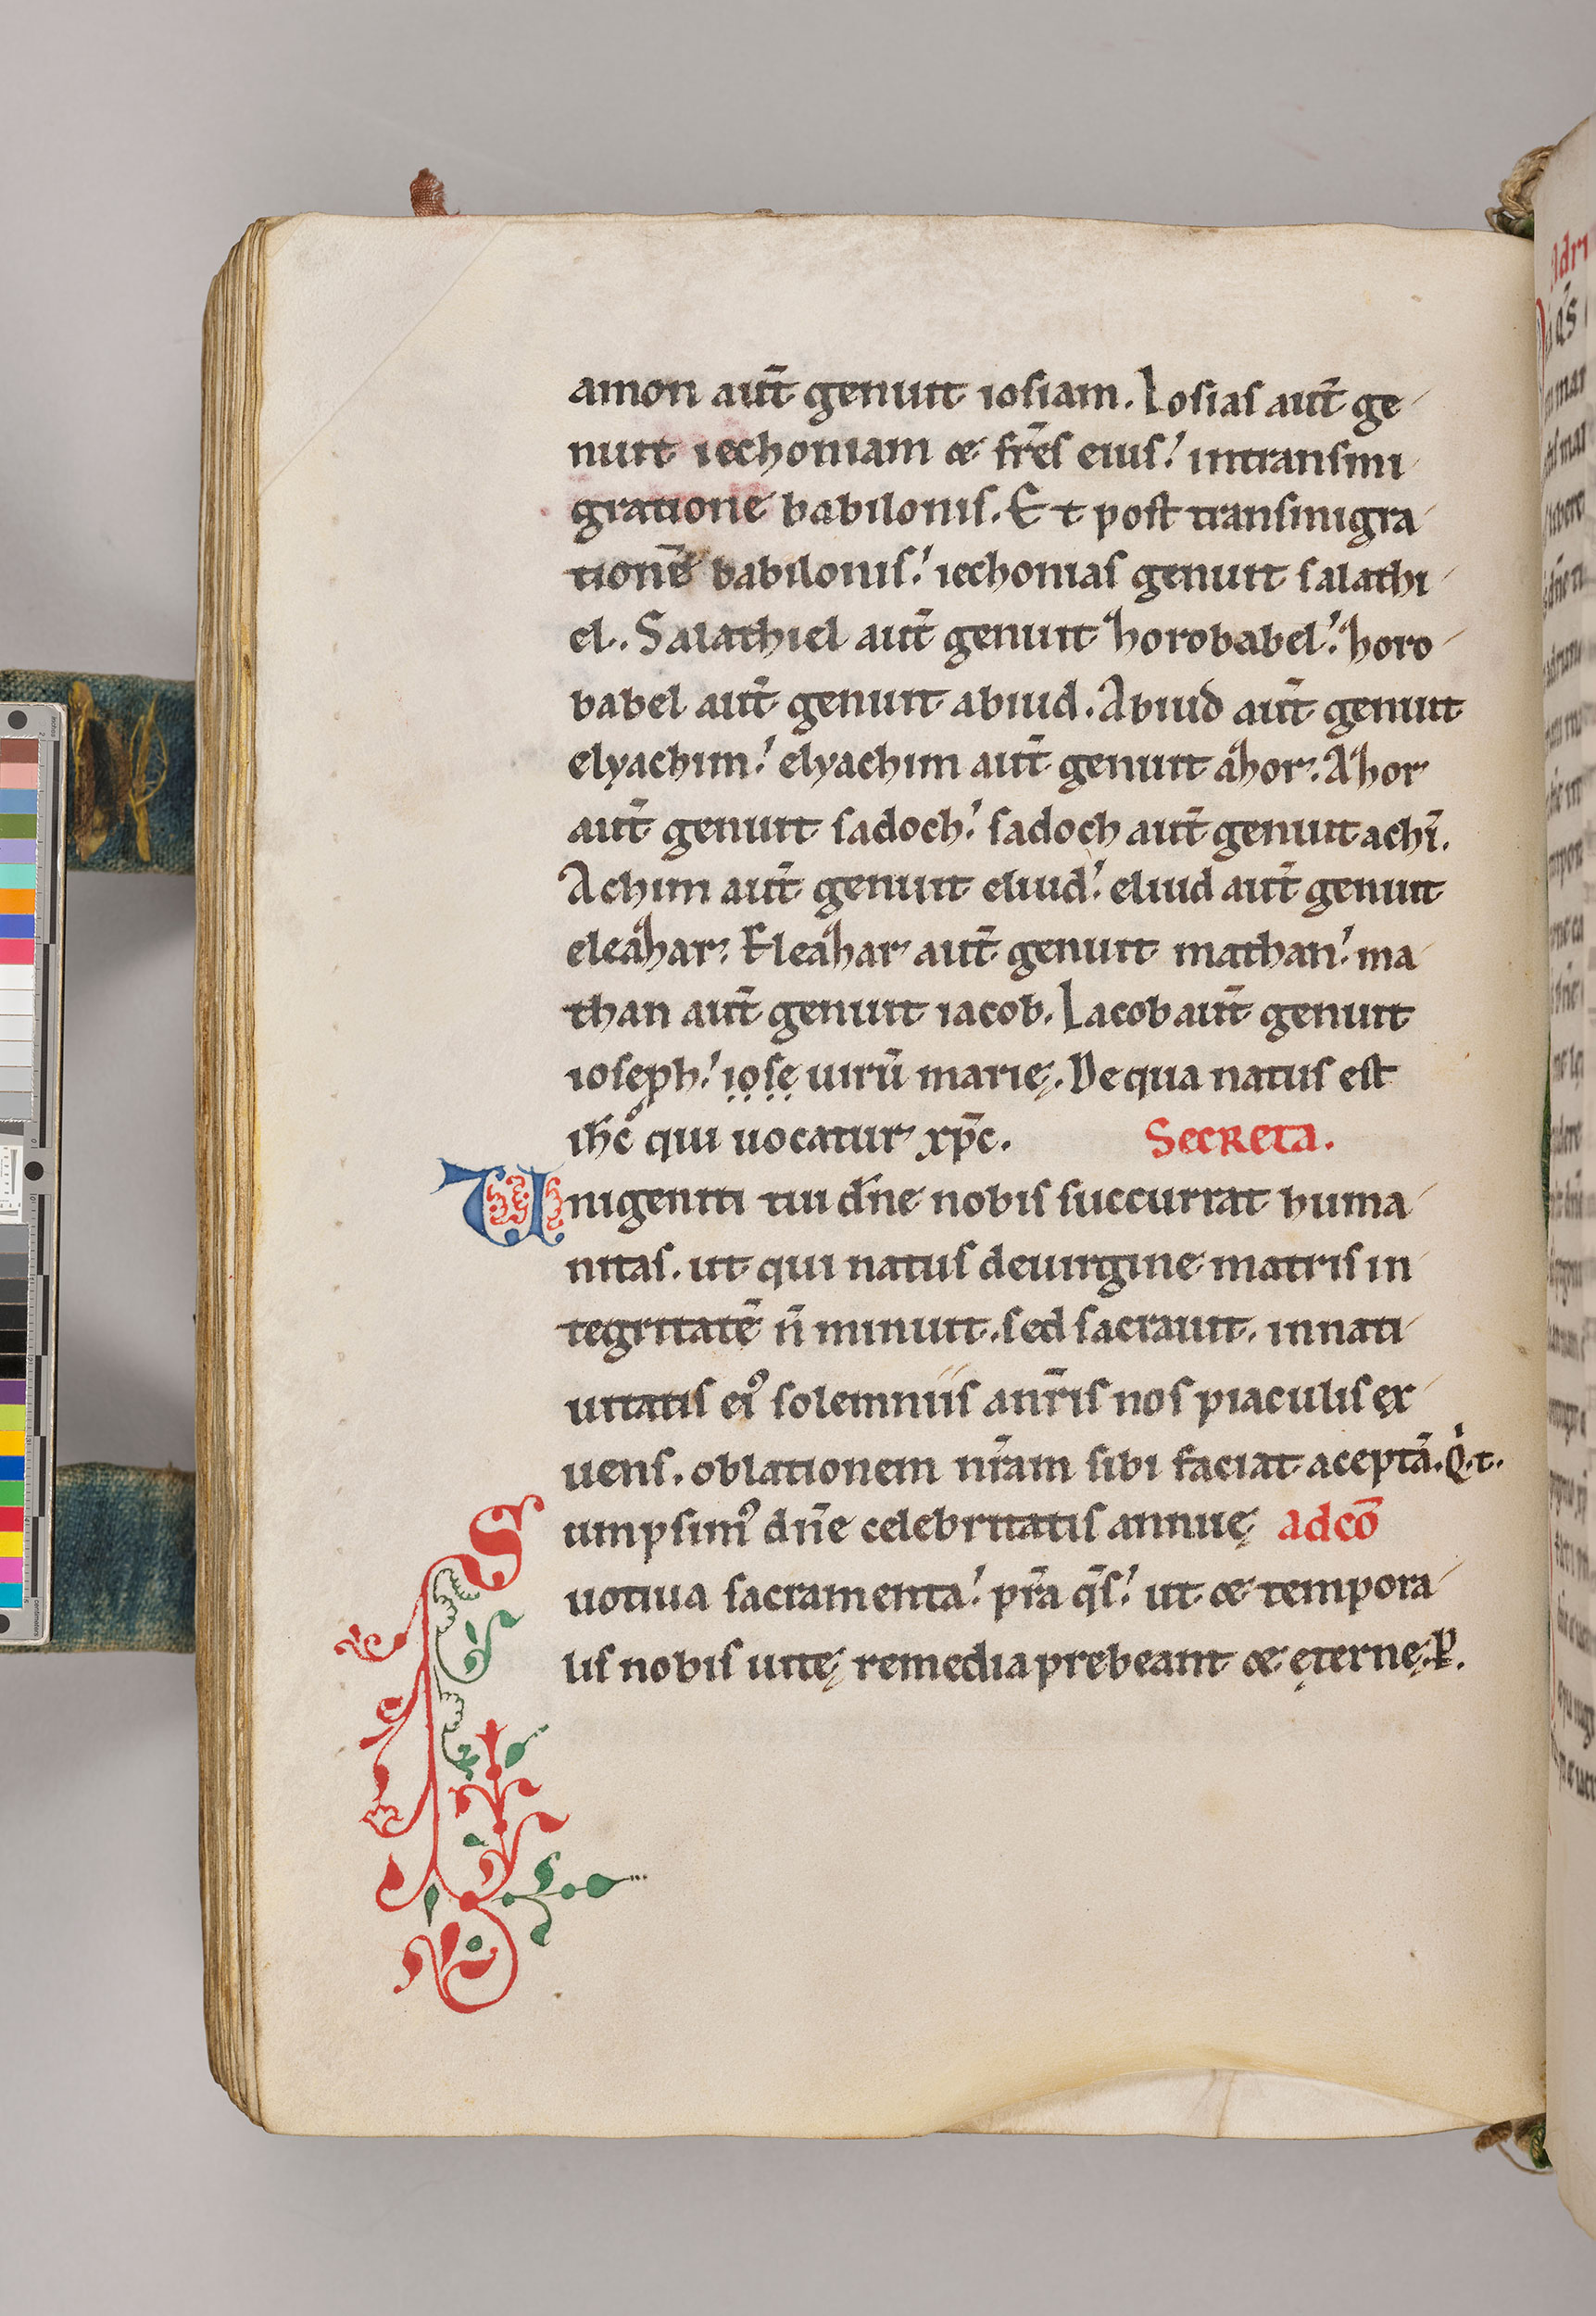 amon aut̄ genuit iosiam. Iosias aut̄ ge
nuit iechoniam & fr̄es eius. intransmi
gratione babilonis. Et post transmigra
tionē babilonis. iechonias genuit salathi
el. Salathiel aut̄ genuit zhorobabel. zhoro
babel aut̄ genuit abiud. Abiud aut̄ genuit
elyachim. elyachim aut̄ genuit azhor. Azhor
aut̄ genuit sadoch. sadoch aut̄ genuit achī.
Achim aut̄ genuit eliud. eliud aut̄ genuit
eleazhar. Eleazhar aut̄ genuit mathan. ma
than aut̄ genuit iacob. Iacob aut̄ genuit
ioseph. iọsẹ uirū marię. De qua natus est
ih̄c qui uocatur xp̄c. Secreta.
Unigeniti tui dn̄e nobis succurrat huma
nitas. ut qui natus deuirgine matris in
tegritatē n̄ minuit. sed sacrauit. innati
uitatis eiꝰ solemniis anr̄is nos piaculis ex
uens. oblationem nr̄am sibi faciat aceptā. Q. t.
Sumpsimꝰ dn̄e celebritatis annuę adcō
uotiua sacramenta. pr̄a q̄s. ut & tempora
lis nobis uitę remedia prebeant & ęternę. P.